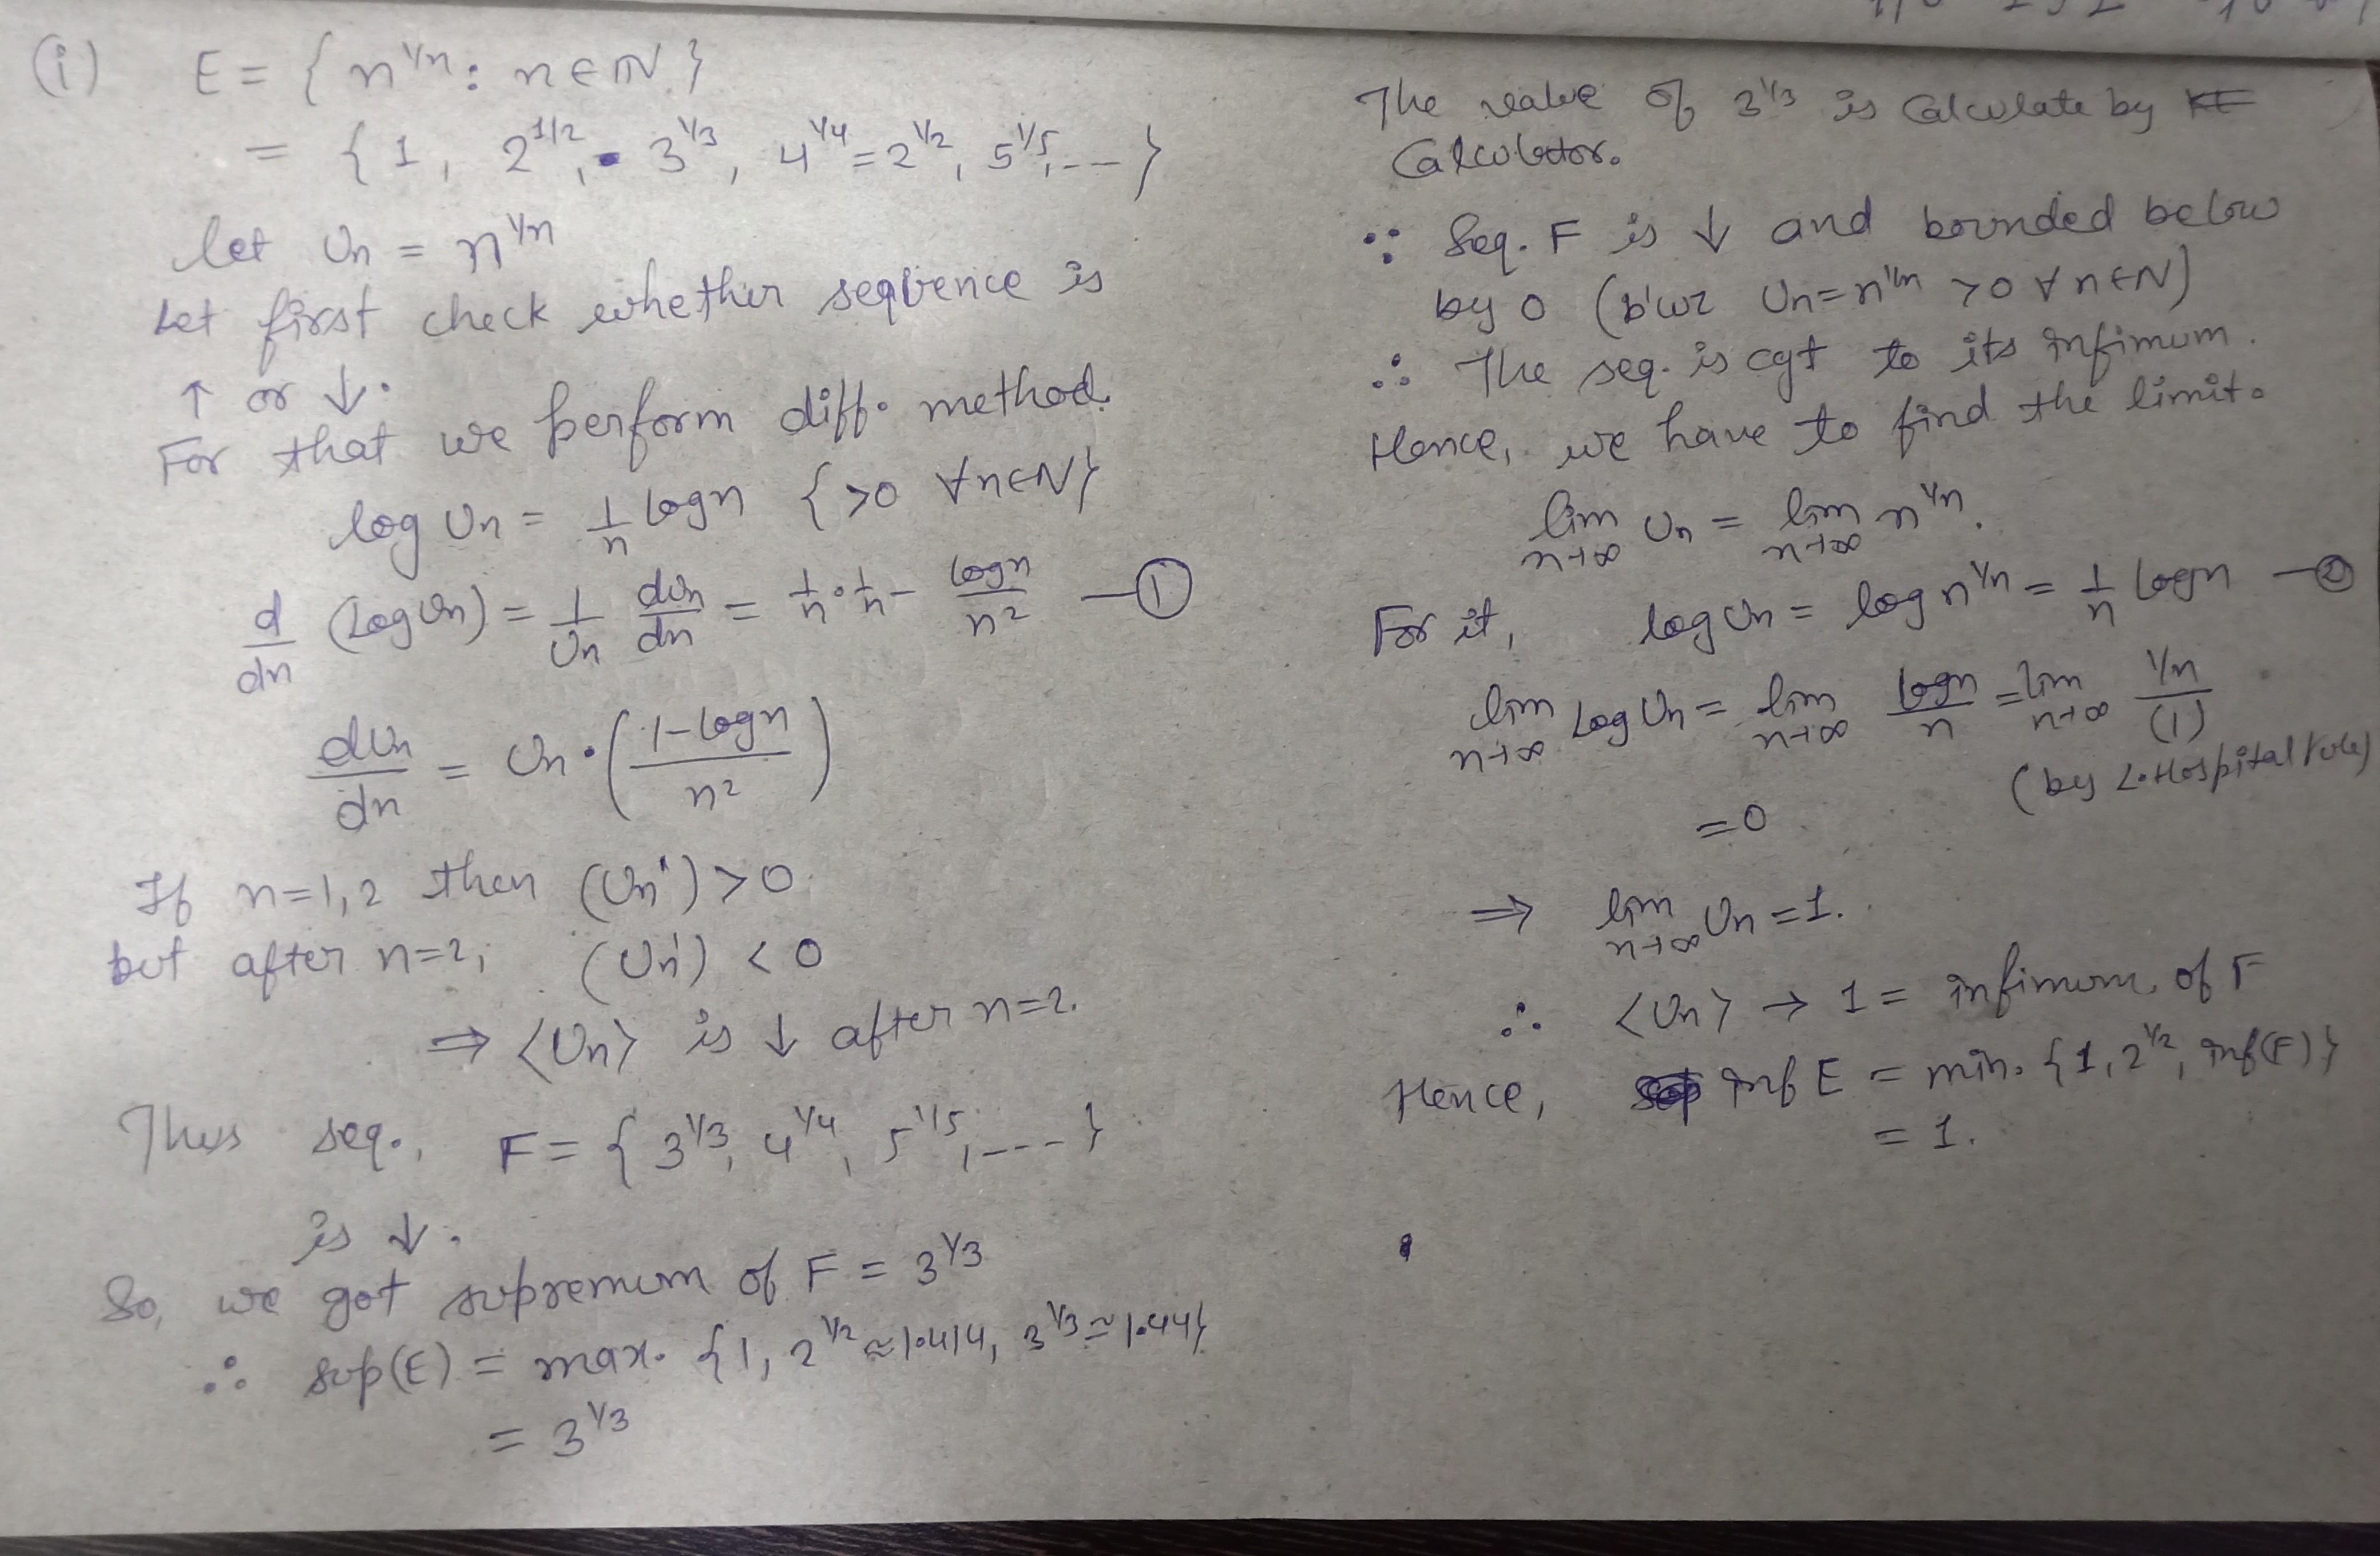 (i) E = { n^{1/n} : n ∈ N }
= { 1, 2^{1/2}, 3^{1/3}, 4^{1/4} = 2^{1/2}, 5^{1/5}, --- }
let Un = n^{1/n}
Let first check whether sequence is
↑ or ↓.
For that we perform diff. method.
log Un = 1/n log n { >0 ∀ n∈N }
d/dn (Log Un) = 1/Un dUn/dn = 1/n · 1/n - logn/n² —①
dUn/dn = Un · ( (1-logn)/n² )
If n=1,2 then (Un') > 0
but after n=2, (Un') < 0
⇒ <Un> is ↓ after n=2.
Thus seq., F = { 3^{1/3}, 4^{1/4}, 5^{1/5}, ---- }
is ↓.
So, we got supremum of F = 3^{1/3}
∴ sup(E) = max. { 1, 2^{1/2} ≃ 1.414, 3^{1/3} ≃ 1.44 }
= 3^{1/3}
The value of 3^{1/3} is Calculate by
Calculator.
∵ Seq. F is ↓ and bounded below
by 0 (b'coz Un = n^{1/n} > 0 ∀ n∈N)
∴ The seq. is cgt to its infimum.
Hence, we have to find the limit.
lim n→∞ Un = lim n→∞ n^{1/n}.
For it, log Un = log n^{1/n} = 1/n logn —②
lim n→∞ Log Un = lim n→∞ logn/n = lim n→∞ (1/n)/(1)
(by L.Hospital rule)
= 0
⇒ lim n→∞ Un = 1.
∴ <Un> → 1 = infimum of F
Hence, inf E = min. { 1, 2^{1/2}, inf(F) }
= 1.